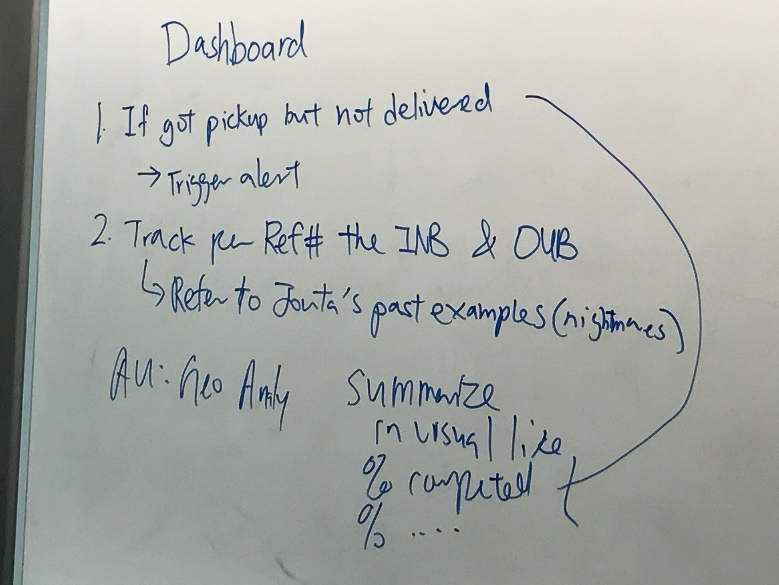 Dashboard
1. If got pickup but not delivered
→ Trigger alert
2. Track per Ref# the INB & OUB
↳ Refer to Jouta's past examples (nightmares)
AU: Geo
Summarize
in visual like
% completed
% ....